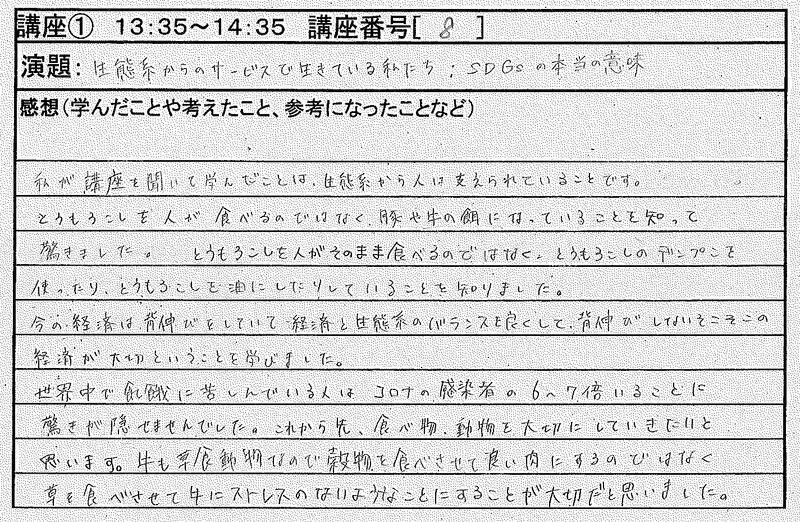 講座① 13:35～14:35 講座番号[ 8 ]
演題: 生態系からのサービスで生きている私たち; SDGsの本当の意味
感想(学んだことや考えたこと、参考になったことなど)
私が講座を聞いて学んだことは、生態系から人は支えられていることです。
とうもろこしを人が食べるのではなく、豚や牛の餌になっていることを知って
驚きました。 とうもろこしを人がそのまま食べるのではなく、とうもろこしのデンプンを
使ったり、とうもろこしを油にしたりしていることを知りました。
今の経済は背伸びをしていて経済と生態系のバランスを良くして、背伸びしないそこそこの
経済が大切ということを学びました。
世界中で飢餓に苦しんでいる人はコロナの感染者の6~7倍いることに
驚きが隠せませんでした。これから先、食べ物、動物を大切にしていきたいと
思います。牛も草食動物なので穀物を食べさせて濃い肉にするのではなく
草を食べさせて牛にストレスのないようなことにすることが大切だと思いました。